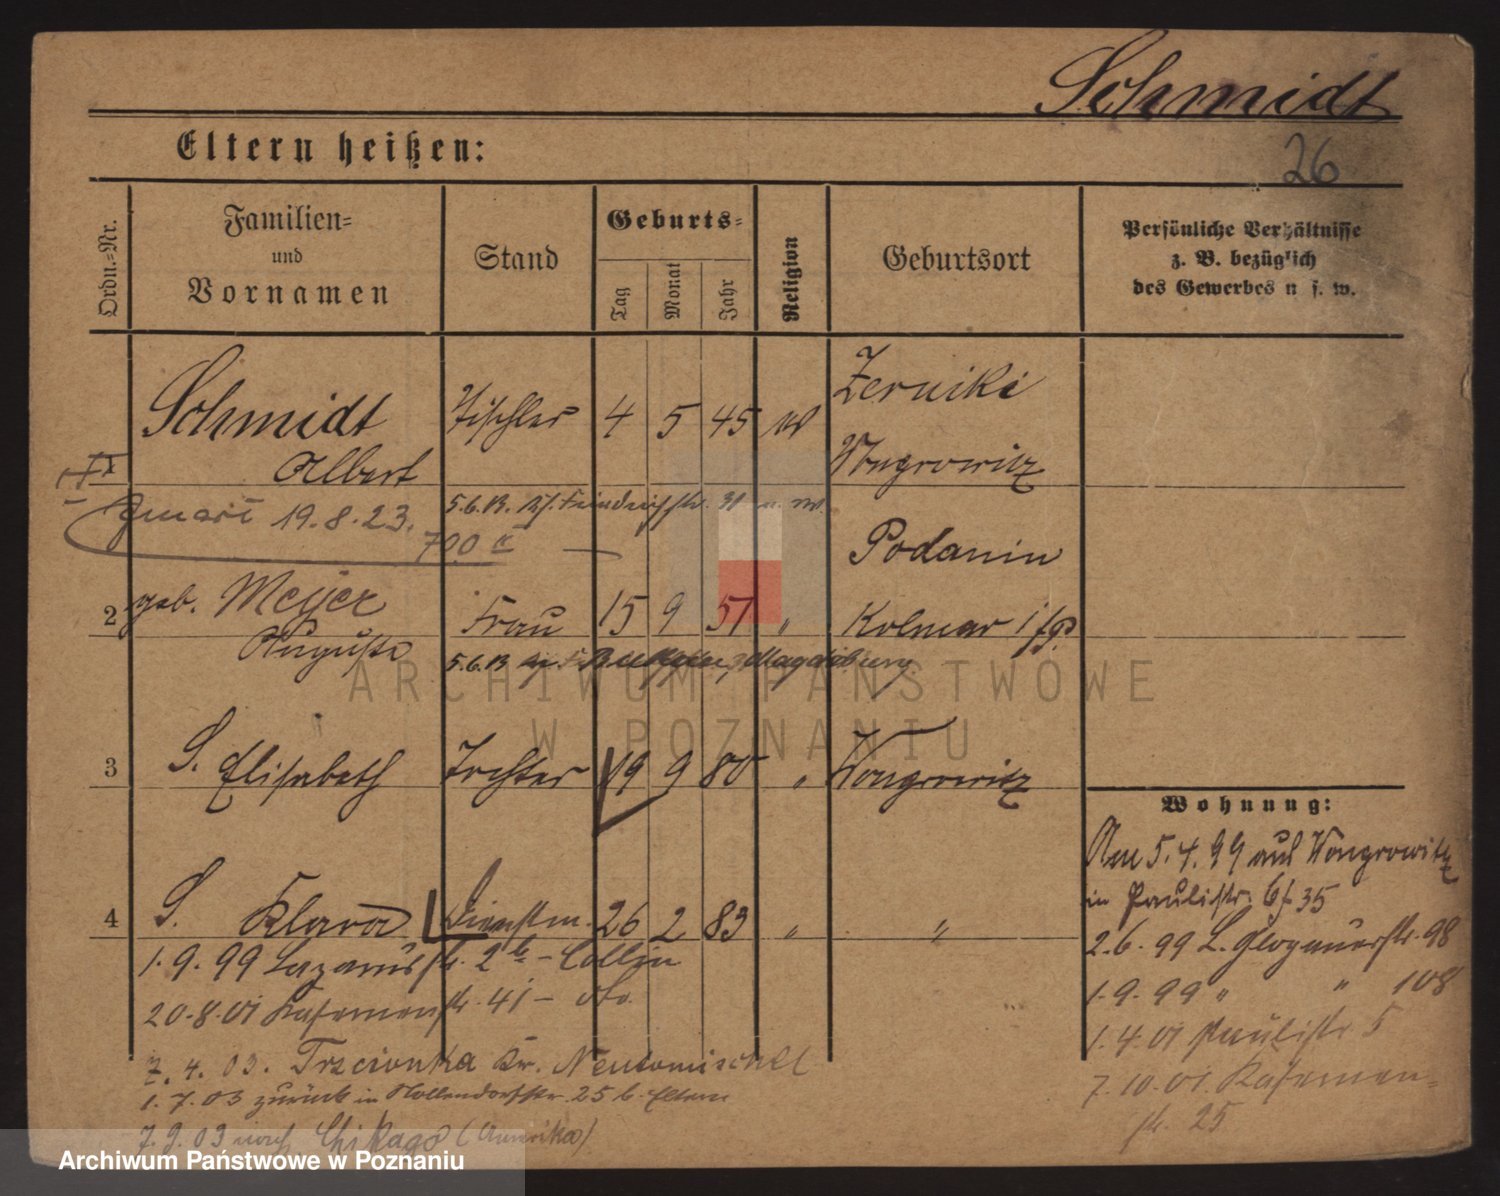 Schmidt
Eltern heißen:
26
Ordn.=Nr.
Familien=
und
Vornamen
Stand
Geburts=
Tag
Monat
Jahr
Religion
Geburtsort
Persönliche Verhältnisse
z. B. bezüglich
des Gewerbes u. s. w.
1
Schmidt
Albert
Tischler
4 5 45
Zerniki
Wongrowitz
19.8.23.
5.6.13.
700
2
geb. Meyer
Auguste
Frau
15 9 51 "
Podanin
Kolmar i/P.
5.6.13
Magdeburg
3
S. Elisabeth
Tochter
19 9 80 "
Wongrowitz
4
S. Klara
Dienstm.
26 2 83 " "
1.9.99 Lazarusstr. 2b - Collin
20.8.01 Kasernenstr. 41 -
7.4.03. Trzcionka Kr. Neutomischel
1.7.03 zurück in Nollendorfstr. 25 b. Eltern
7.9.03 nach Chikago (Amerika)
Wohnung:
Am 5.4.99 aus Wongrowitz
in Paulistr. 35
2.6.99 L. Glogauerstr. 98
1.9.99 " " 108
1.4.01 Paulistr. 5
7.10.01 Kasernen=
str. 25
ARCHIWUM PAŃSTWOWE
W POZNANIU
Archiwum Państwowe w Poznaniu